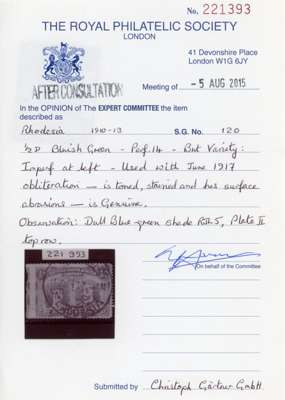 No. 221393
THE ROYAL PHILATELIC SOCIETY
LONDON
41 Devonshire Place
London W1G 6JY
AFTER CONSULTATION
Meeting of - 5 AUG 2015
In the OPINION of The EXPERT COMMITTEE the item
described as
Rhodesia 1910-13 S.G. No. 120
½D Bluish Green - Perf. 14 - But Variety:
Imperf at left - Used with June 1917
obliteration — is toned, stained and has surface
abrasions — is Genuine.
Observation: Dull Blue-green shade 5, Plate II
top row.
221 393
On behalf of the Committee
Submitted by Christoph Gärtner GmbH